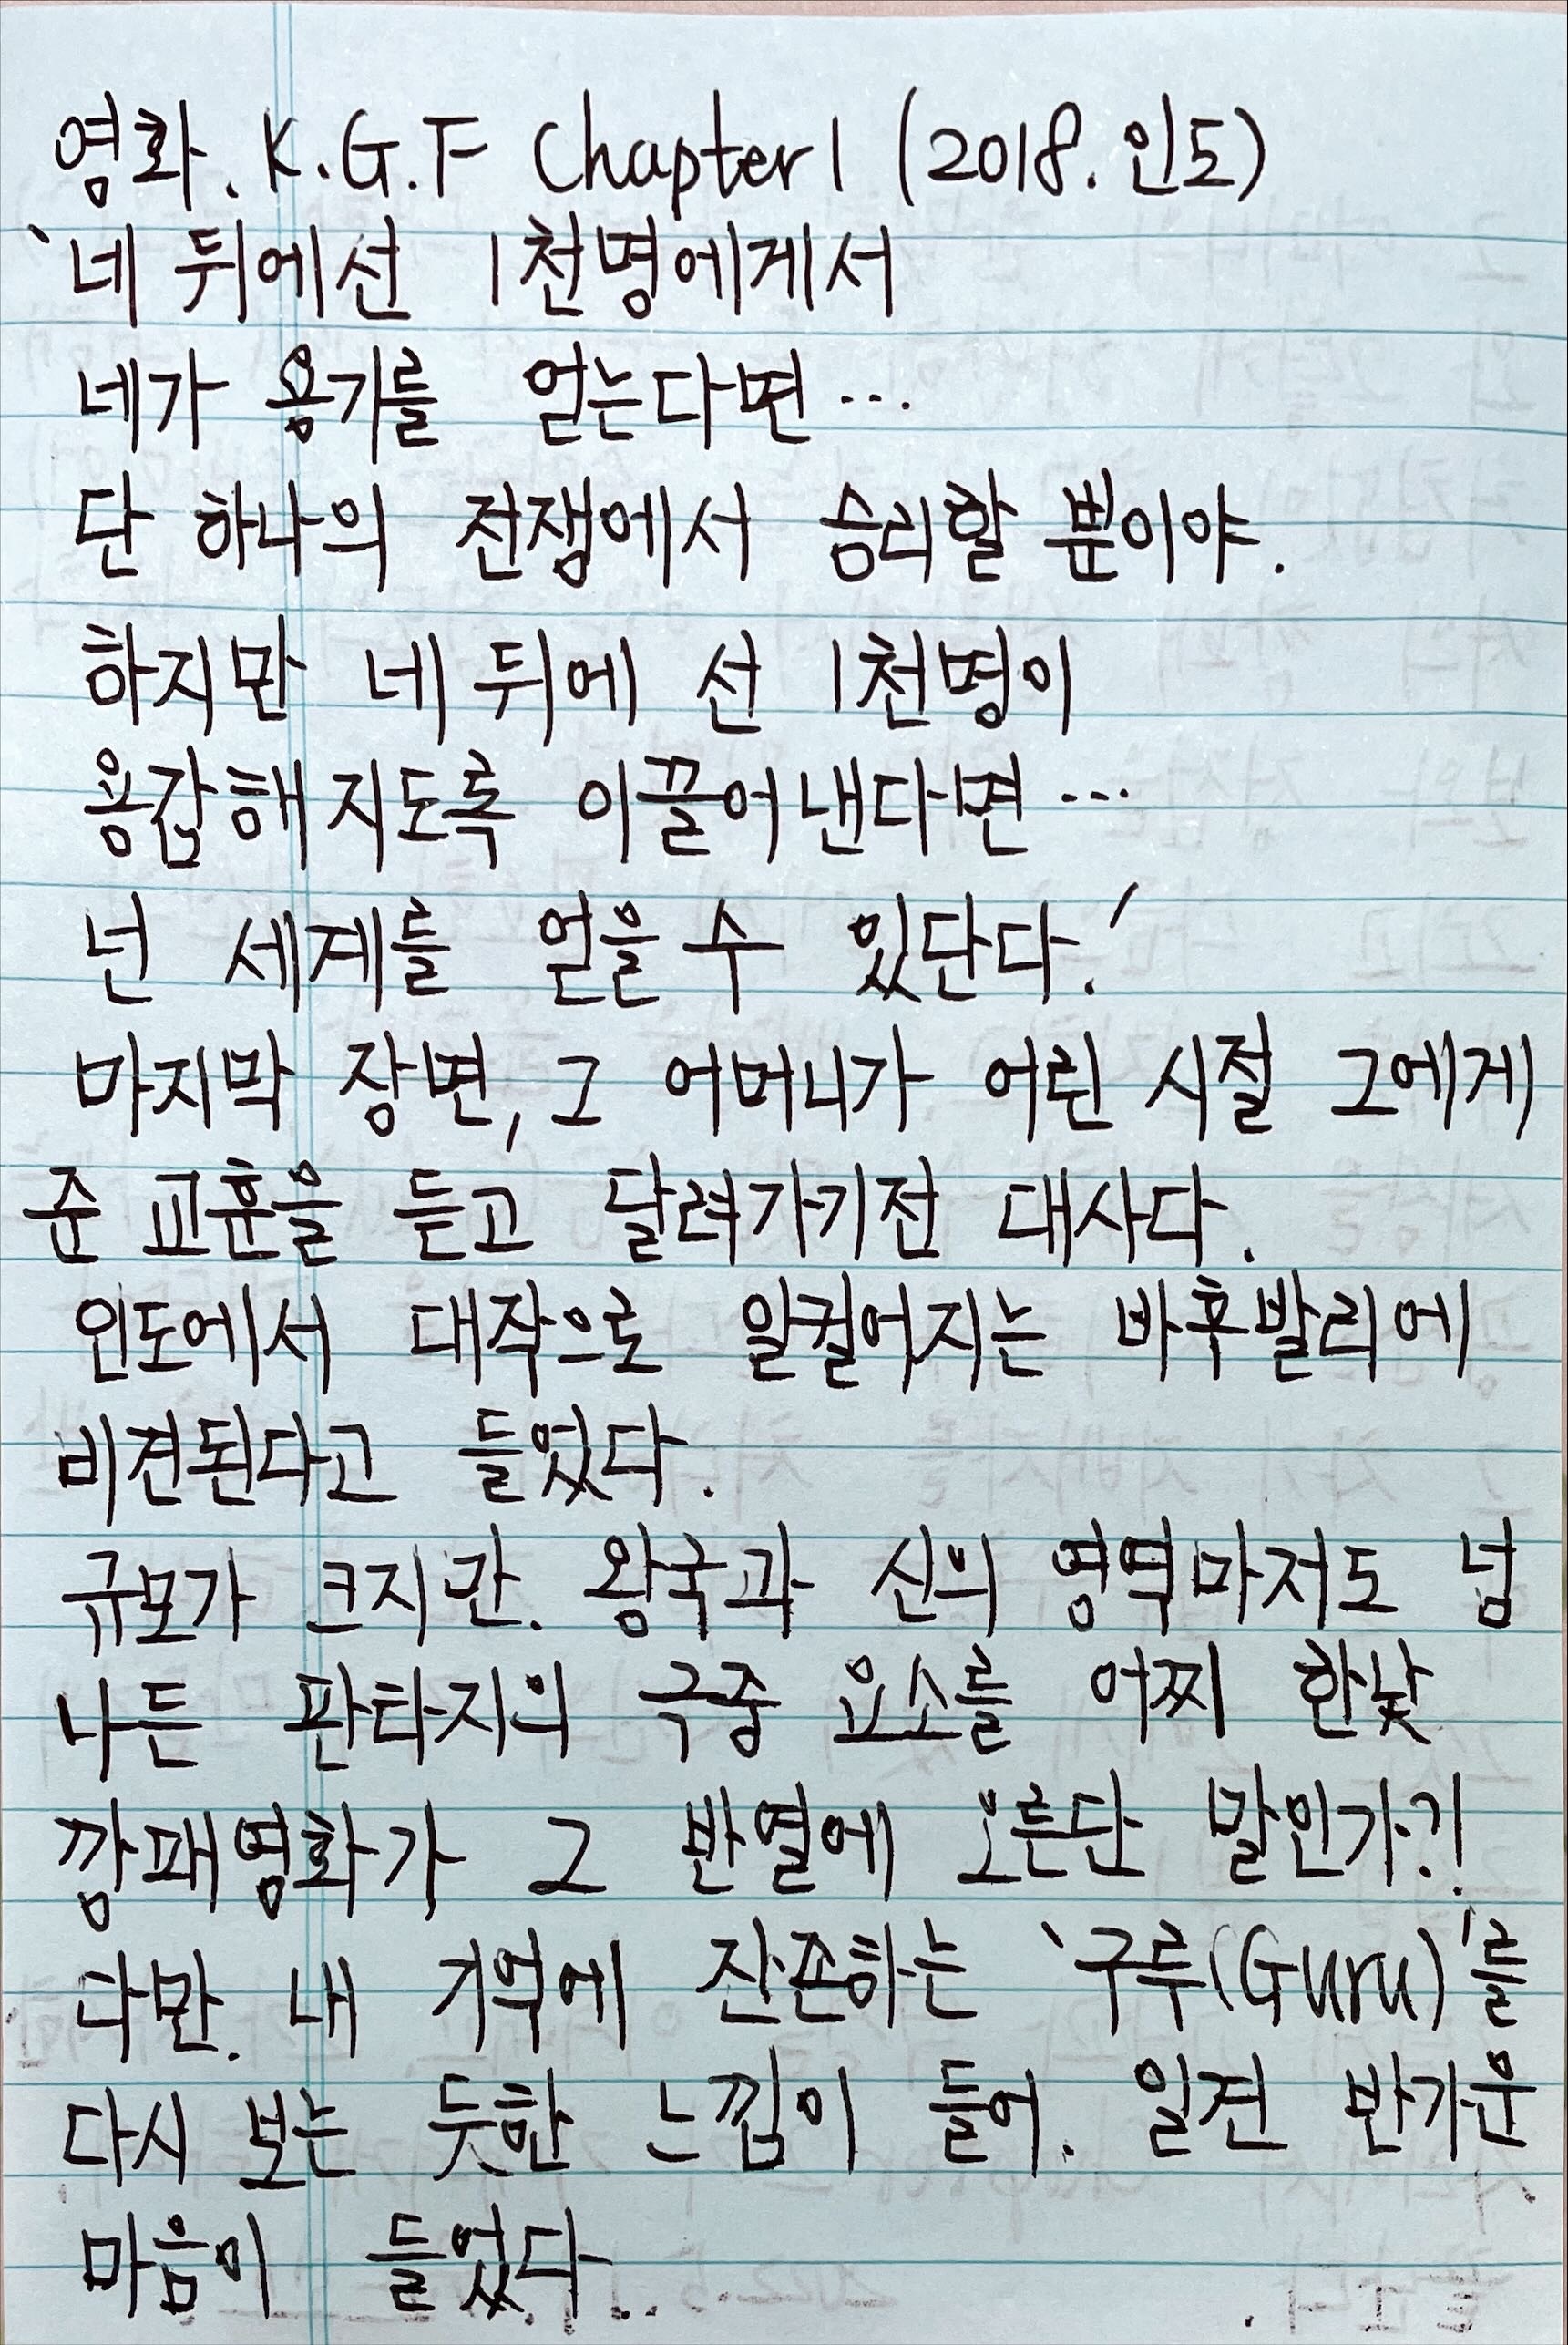 영화. K.G.F Chapter 1 (2018. 인도)
'네 뒤에선 1천명에게서
네가 용기를 얻는다면...
단 하나의 전쟁에서 승리할 뿐이야.
하지만 네 뒤에 선 1천명이
용감해지도록 이끌어낸다면...
넌 세계를 얻을 수 있단다.'
마지막 장면, 그 어머니가 어린 시절 그에게
준 교훈을 듣고 달려가기전 대사다.
인도에서 대작으로 일컬어지는 바후발리에
비견된다고 들었다.
규모가 크지만. 왕국과 신의 영역마저도 넘
나든 판타지의 극중 요소를 어찌 한낯
깡패영화가 그 반열에 오른단 말인가?!
다만. 내 기억에 잔존하는 '구루(Guru)'를
다시 보는 듯한 느낌이 들어. 일견 반가운
마음이 들었다.